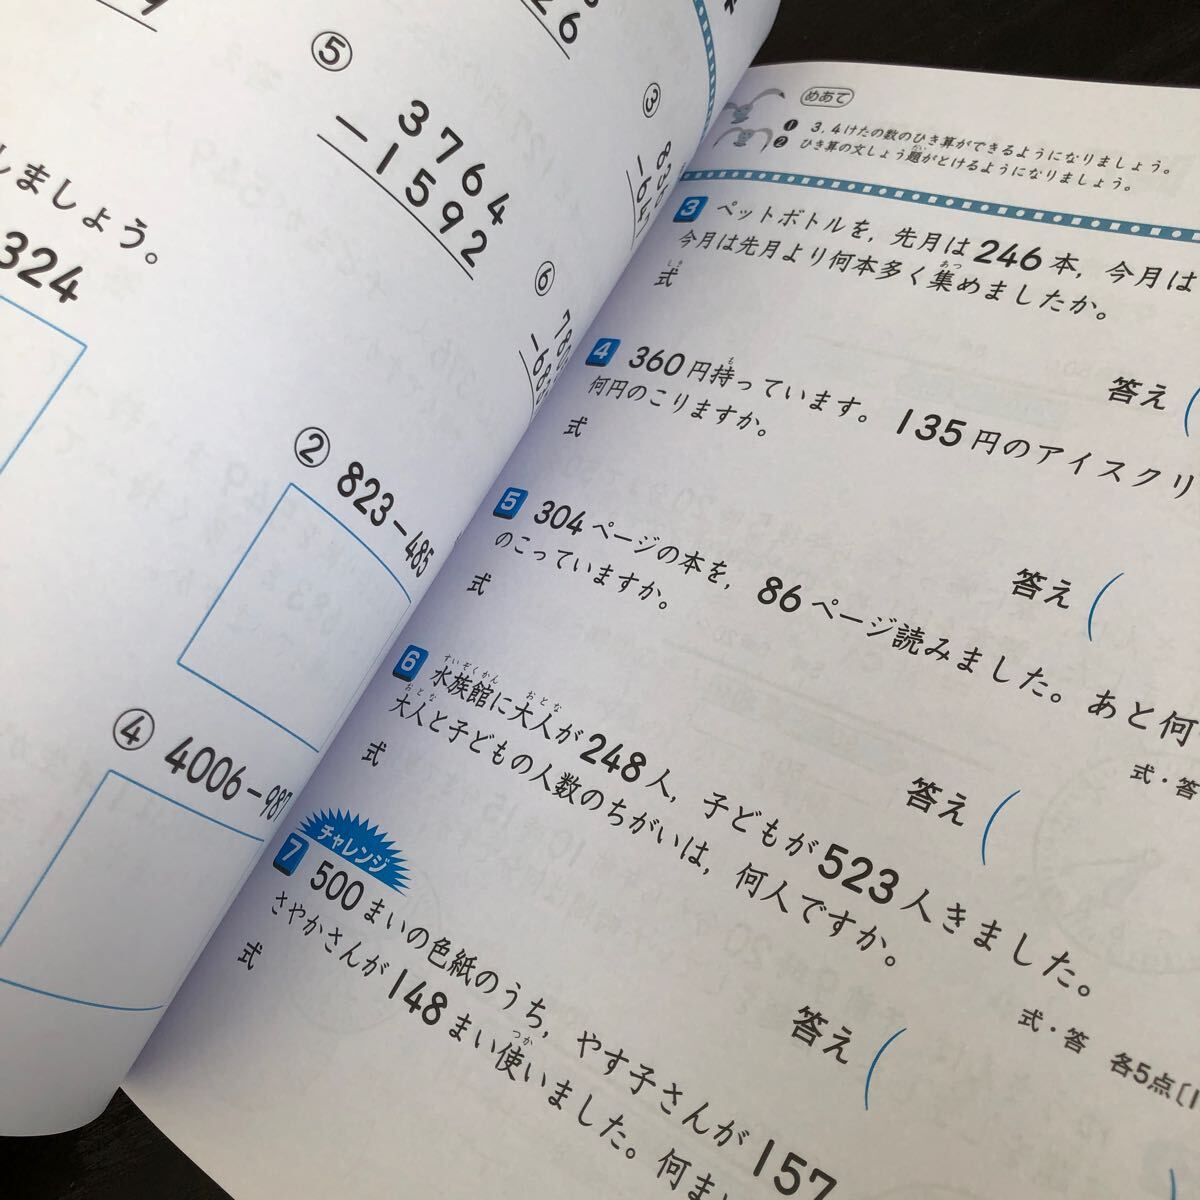 26
⑤
3764
−1592
③
⑥
しましょう。
324
② 823−485
④ 4006−987
めあて
❶ 3,4けたの数のひき算ができるようになりましょう。
❷ ひき算の文しょう題がとけるようになりましょう。
3 ペットボトルを，先月は246本，今月は
今月は先月より何本多く集めましたか。
式
答え（
4 360円持っています。135円のアイスクリ
何円のこりますか。
式
答え（
5 304ページの本を，86ページ読みました。あと何
のこっていますか。
式
式・答
答え（
6 水族館に大人が248人，子どもが523人きました。
大人と子どもの人数のちがいは，何人ですか。
式
式・答 各5点〔1
答え（
チャレンジ
7 500まいの色紙のうち，やす子さんが157
さやかさんが148まい使いました。何まい
式